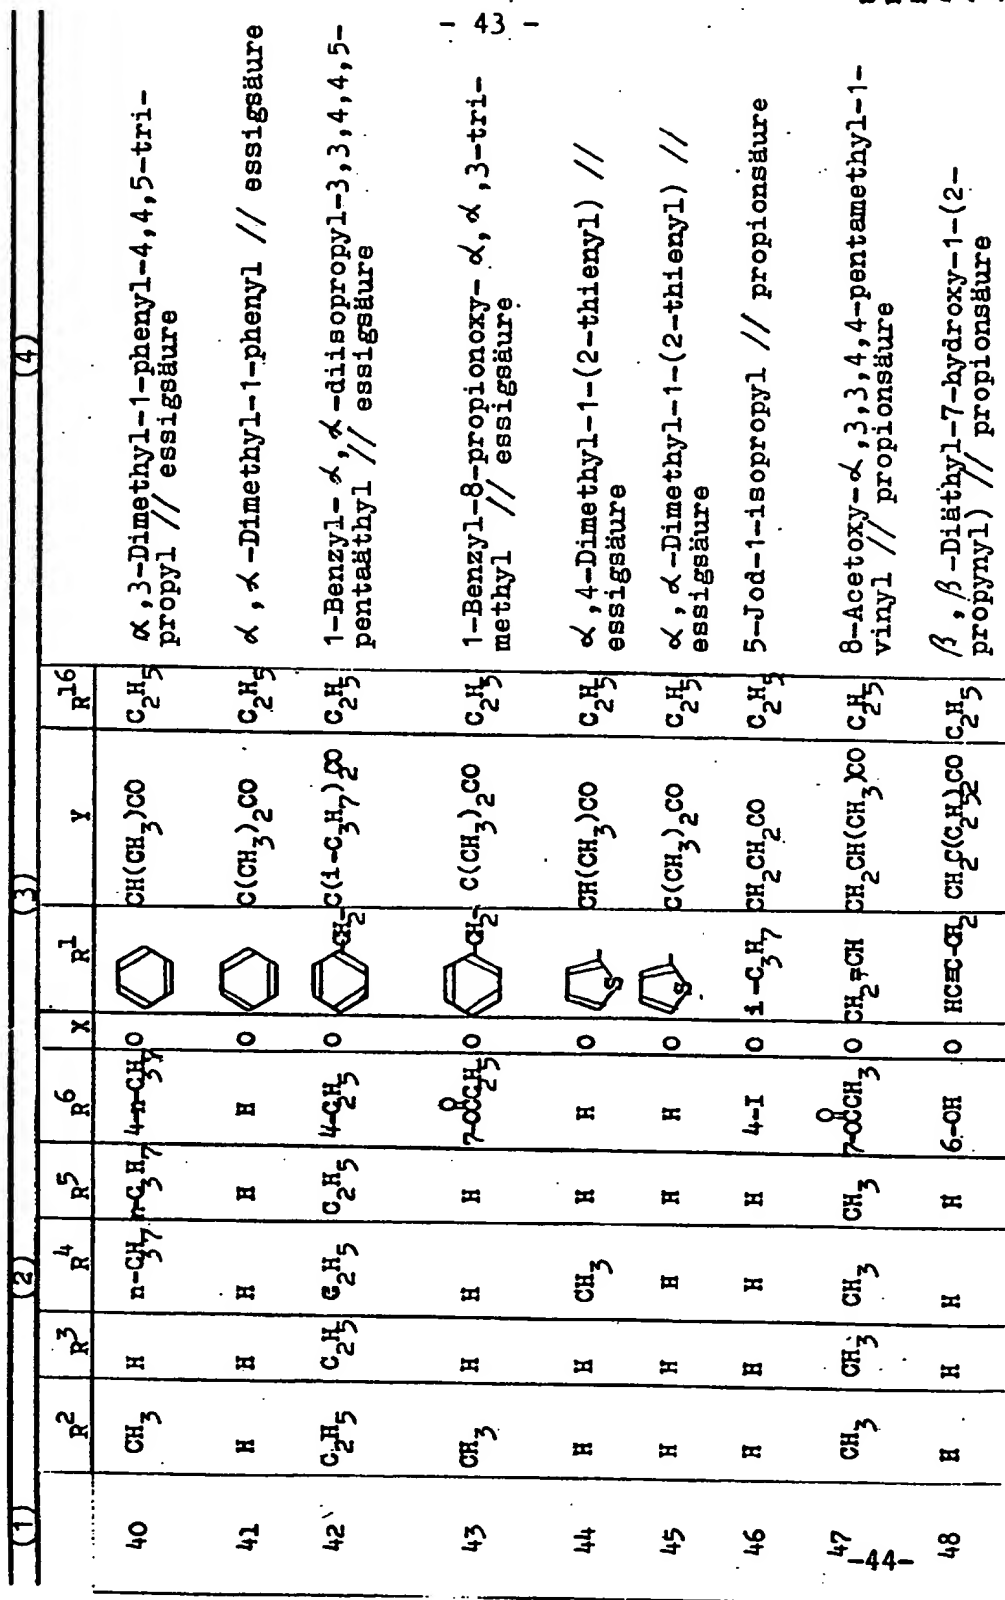 - 43 -
(1) (2) (3) (4)
R² R³ R⁴ R⁵ R⁶ X R¹ Y R¹⁶
40 CH₃ H n-C₃H₇ n-C₃H₇ 4-n-C₃H₇ O CH(CH₃)CO C₂H₅ α,3-Dimethyl-1-phenyl-4,4,5-tri-
propyl // essigsäure
41 H H H H H O C(CH₃)₂CO C₂H₅ α,α-Dimethyl-1-phenyl // essigsäure
42 C₂H₅ C₂H₅ C₂H₅ C₂H₅ 4-C₂H₅ O CH₂- C(i-C₃H₇)₂CO C₂H₅ 1-Benzyl-α,α-diisopropyl-3,3,4,4,5-
pentaäthyl // essigsäure
43 CH₃ H H H 7-OCC₂H₅ O CH₂- C(CH₃)₂CO C₂H₅ 1-Benzyl-8-propionoxy-α,α,3-tri-
methyl // essigsäure
44 H H CH₃ H H O S CH(CH₃)CO C₂H₅ α,4-Dimethyl-1-(2-thienyl) //
essigsäure
45 H H H H H O S C(CH₃)₂CO C₂H₅ α,α-Dimethyl-1-(2-thienyl) //
essigsäure
46 H H H H 4-I O i-C₃H₇ CH₂CH₂CO C₂H₅ 5-Jod-1-isopropyl // propionsäure
47 CH₃ CH₃ CH₃ CH₃ 7-OCCH₃ O CH₂=CH CH₂CH(CH₃)CO C₂H₅ 8-Acetoxy-α,3,3,4,4-pentamethyl-1-
vinyl // propionsäure
48 H H H H 6-OH O HC≡C-CH₂ CH₂C(C₂H₅)₂CO C₂H₅ β,β-Diäthyl-7-hydroxy-1-(2-
propynyl) // propionsäure
-44-